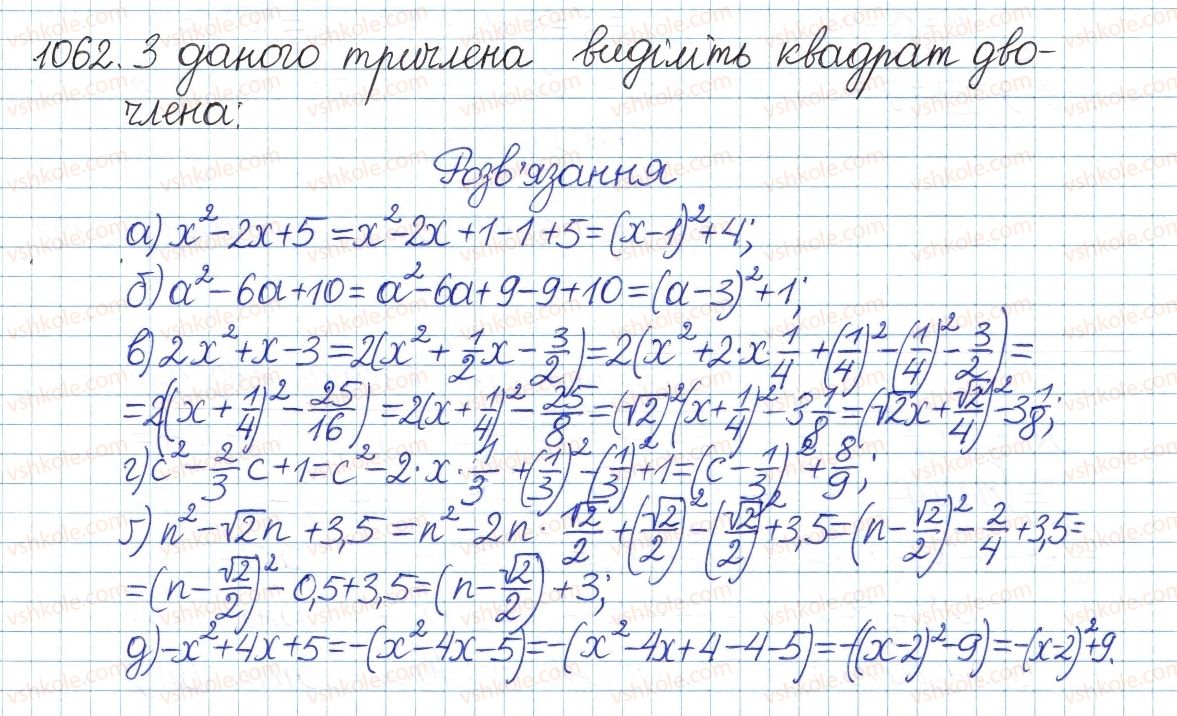 1062. З даного тричлена виділіть квадрат дво-
члена:
Розв'язання
а) x² - 2x + 5 = x² - 2x + 1 - 1 + 5 = (x - 1)² + 4;
б) a² - 6a + 10 = a² - 6a + 9 - 9 + 10 = (a - 3)² + 1;
в) 2x² + x - 3 = 2(x² + 1/2 x - 3/2) = 2(x² + 2·x·1/4 + (1/4)² - (1/4)² - 3/2) =
= 2((x + 1/4)² - 25/16) = 2(x + 1/4)² - 25/8 = (√2)²(x + 1/4)² - 3 1/8 = (√2x + √2/4)² - 3 1/8;
г) c² - 2/3 c + 1 = c² - 2·x·1/3 + (1/3)² - (1/3)² + 1 = (c - 1/3)² + 8/9;
ґ) n² - √2n + 3,5 = n² - 2n·√2/2 + (√2/2)² - (√2/2)² + 3,5 = (n - √2/2)² - 2/4 + 3,5 =
= (n - √2/2)² - 0,5 + 3,5 = (n - √2/2) + 3;
д) -x² + 4x + 5 = -(x² - 4x - 5) = -(x² - 4x + 4 - 4 - 5) = -((x - 2)² - 9) = -(x - 2)² + 9.
vshkole.com